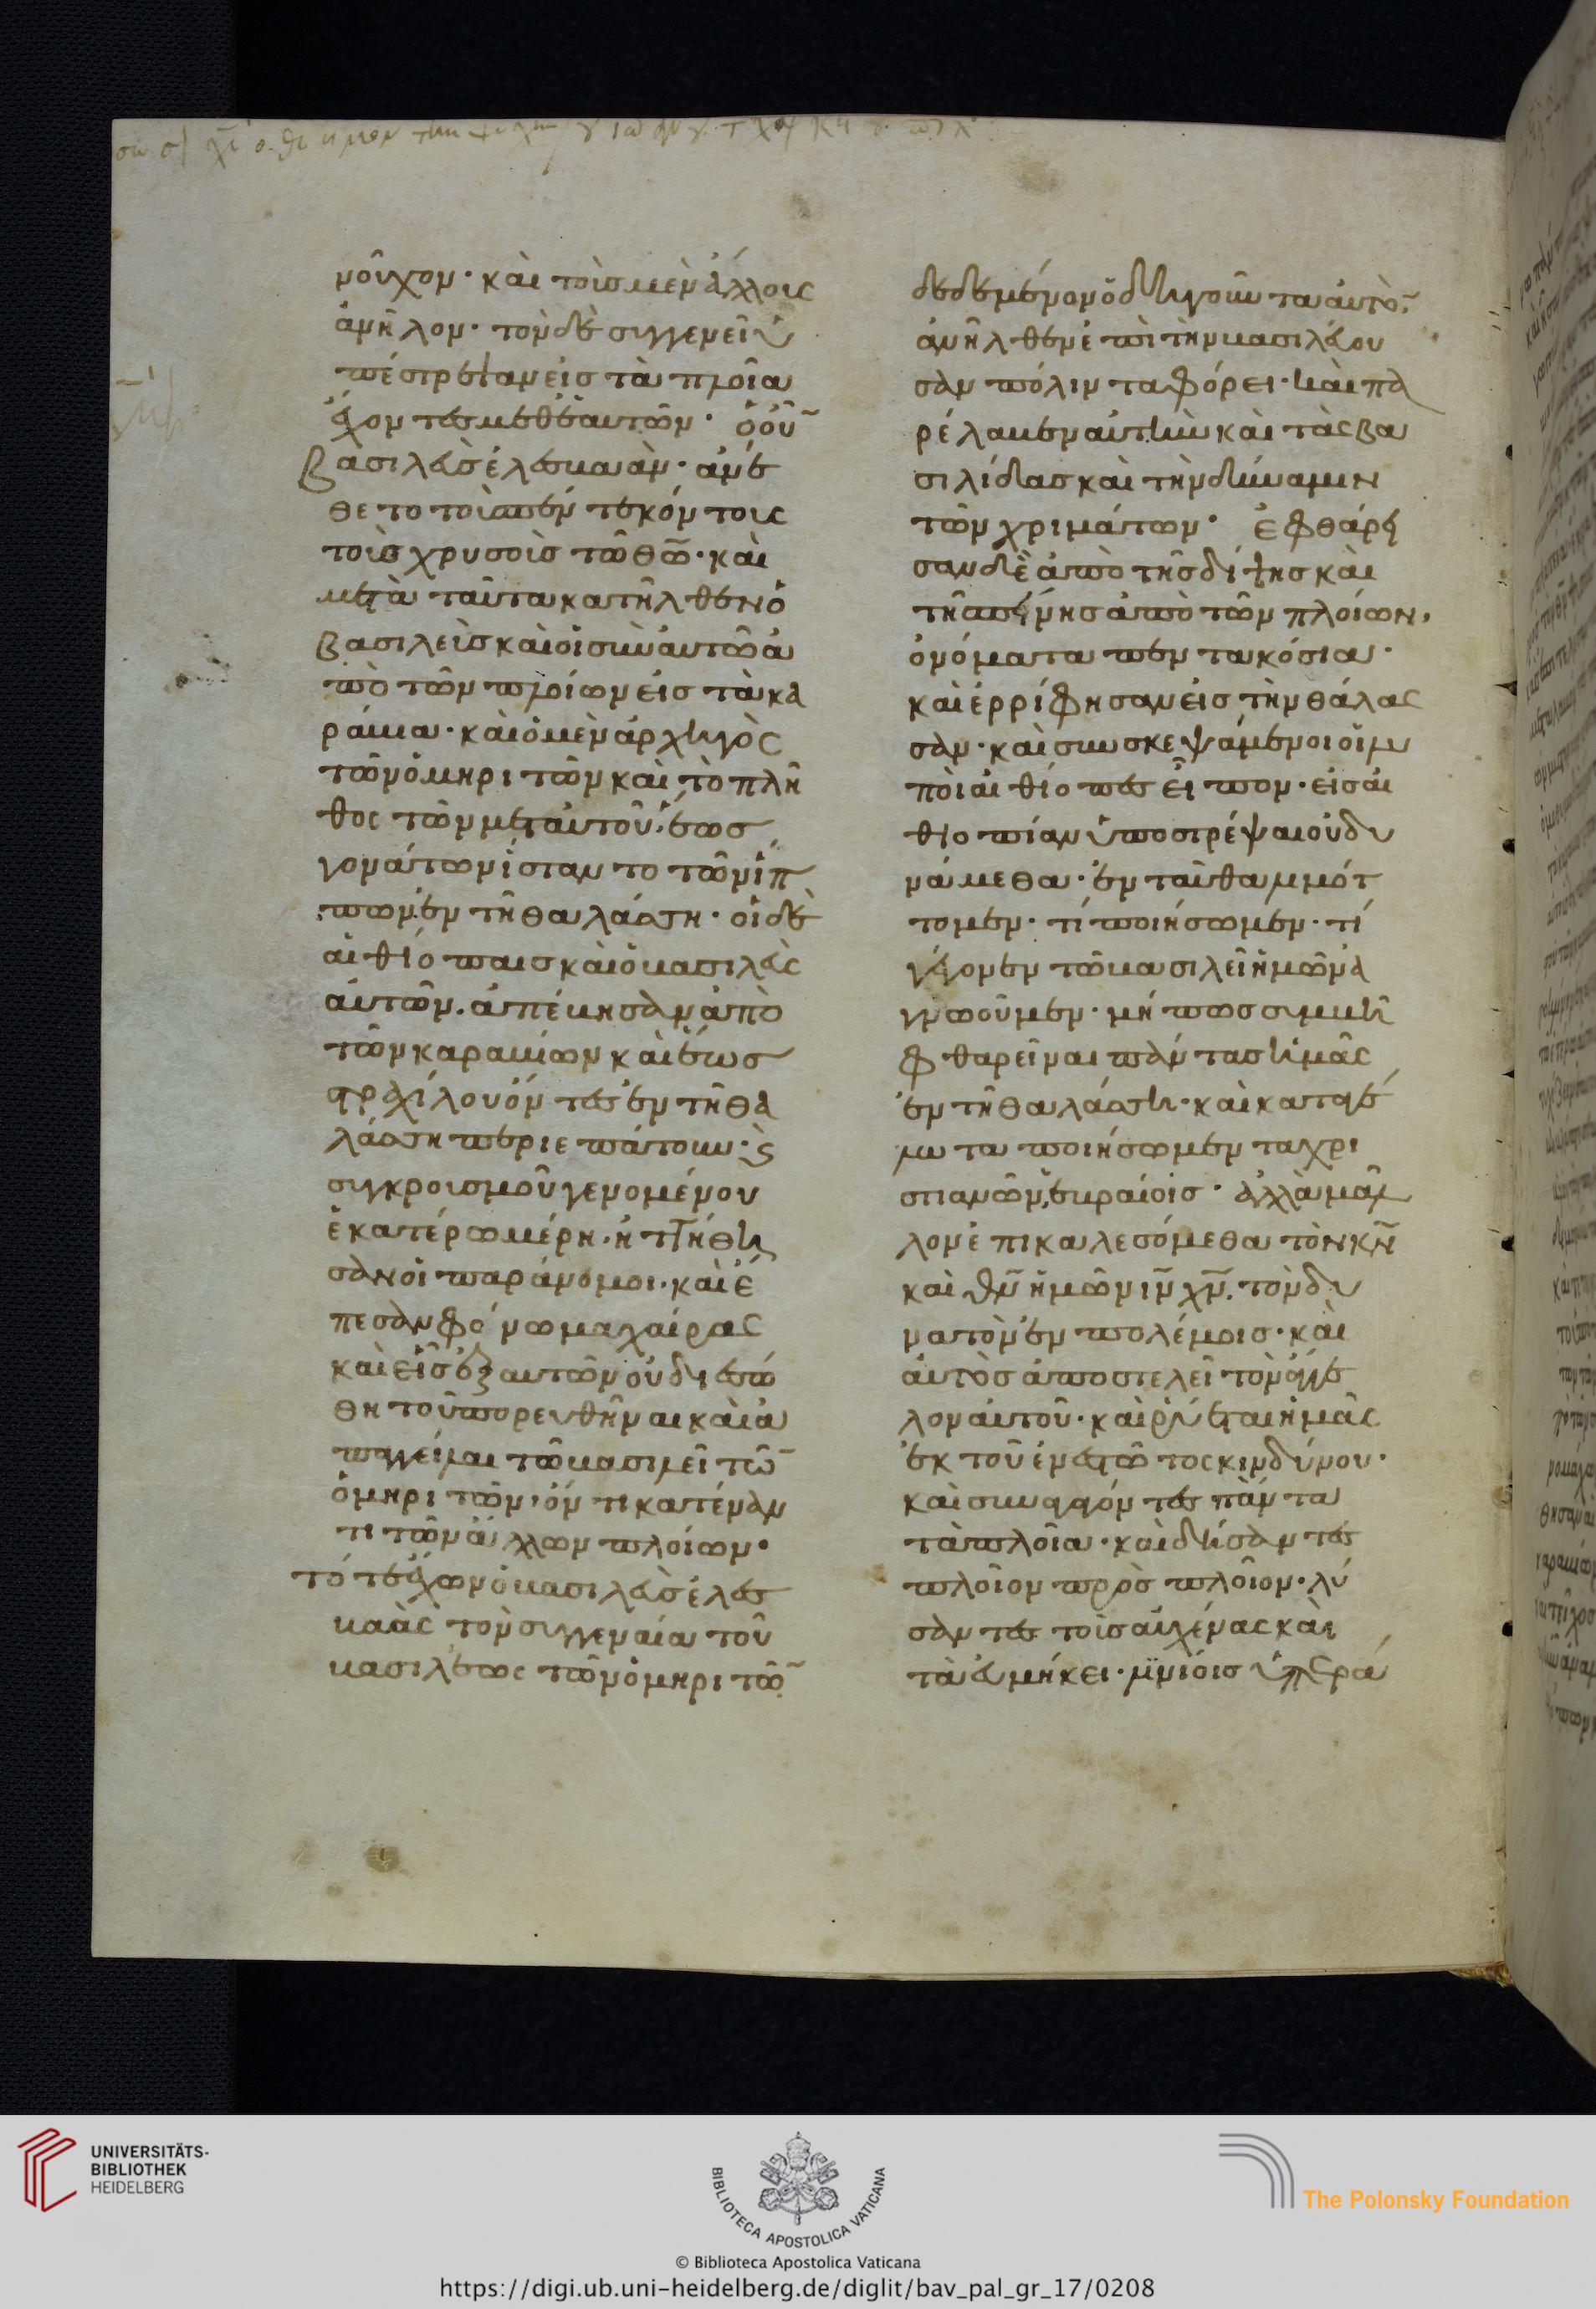 νοῦχον· καὶ τοὶς μὲν ἄλλους
ἀνῆλον· τὸν δὲ συγγενεῖ ὑ
πέστρεψαν εἰς τὰ πλοῖα
ἔχοντες μεθ ἑαυτῶν· ὁ οὖ̄
βασιλεὺς ἐλεσβαὰν· ἀνέ
θετο τοὶς πεντεκόντοις
τοὶς χρυσοὶς τῶ θω̄· καὶ
μετὰ ταῦτα κατῆλθεν ὁ
βασιλεὶς καὶ οἱ σὺν αυτῶ ἀ
πὸ τῶν πλοίων εἰς τὰ κα
ράβια· καὶ ὁ μὲν ἀρχηγὸς
τῶν ὁμηριτῶν καὶ τὸ πλῆ
θος τῶν μετ αὐτοῦ· ἕως
γονάτων ἵσταντο τῶν ἵπ
πων ἐν τῆ θαλάσση· οἱ δὲ
αἰθίοπαις καὶ ὁ βασιλεὺς
αὐτῶν. ἀπέβησαν ἀπὸ
τῶν καραβίων καὶ ἕως
τραχίλου ὄντες ἐν τῆ θα
λάσση περιεπάτουν· ς
συγκροισμοῦ γενομένου
ἑκατέρω μέρη· ἡττήθη
σαν οἱ παράνομοι· καὶ ἔ
πεσαν φόνω μαχαίρας
καὶ εἷς ἐξ αυτῶν οὐδὶ εσώ
θη τοῦ πορευθῆναι καὶ ἀ
παγγεῖλαι τῶ βασιλεῖ τῶ̄
ὁμηριτῶν· ὄντι κατέναν
τι τῶν ἄλλων πλοίων·
τότε ἔχων ὁ βασιλεὺς ἐλεσ
βαὰς τὸν συγγεναία τοῦ
βασιλέως τῶν ὁμηριτῶ̄
δεδεμένον ὁδηγοῦντα αὐτὸ̄·
ἀνῆλθεν ἐπὶ τὴν βασιλεύου
σαν πόλιν ταφόρει· καὶ πα
ρέλαβεν αὐτὴν καὶ τὰς βα
σιλίδας καὶ τὴν δύναμιν
τῶν χριμάτων· ἐφθάρη
σαν δὲ ἀπὸ τῆς δίψης καὶ
τῆς πείνης ἀπὸ τῶν πλοίων·
ὀνόματα πεντακόσια·
καὶ ἐρρίφησαν εἰς τὴν θάλασ
σαν· καὶ συνσκεψάμενοι οἱ λυ
ποὶ αἰθίοπες εἶπον· εἰς αἰ
θιοπίαν ὑποστρέψαι οὐ δυ
νάμεθα· ἐνταῦθα λιμότ
τομεν· τί ποιήσωμεν· τί
γέγονεν τῶ βασιλεῖ ἡμῶν ἀ
γνωοῦμεν· μή πως συμβῆ
φθαρεῖναι πάντας ἡμᾶς
ἐν τῆ θαλάσση· καὶ κατα γέ
λωτα ποιήσωμεν τα χρι
στιανῶν, ἑβραίοις· ἀλλὰ μᾶλ
λον ἐπικαλεσόμεθα τὸν κν̄
καὶ θν̄ ἡμῶν ιν̄ χν̄. τὸν δυ
νατὸν ἐν πολέμοις· καὶ
αὐτὸς ἀποστελεῖ τὸν ἄγγε
λον αὐτοῦ· καὶ ρύσεται ἡμᾶς
ἐκ τοῦ ἐνεστῶτος κινδύνου·
καὶ συναγαγόντες πάντα
τὰ πλοῖα· καὶ δήσαντες
πλοῖον πρὸς πλοῖον· λύ
σαντες τοὶς αὐχένας καὶ
τὰ ἐυμήκει· μνίοις ὑπερά
UNIVERSITÄTS-
BIBLIOTHEK
HEIDELBERG
BIBLIOTECA APOSTOLICA VATICANA
The Polonsky Foundation
© Biblioteca Apostolica Vaticana
https://digi.ub.uni-heidelberg.de/diglit/bav_pal_gr_17/0208